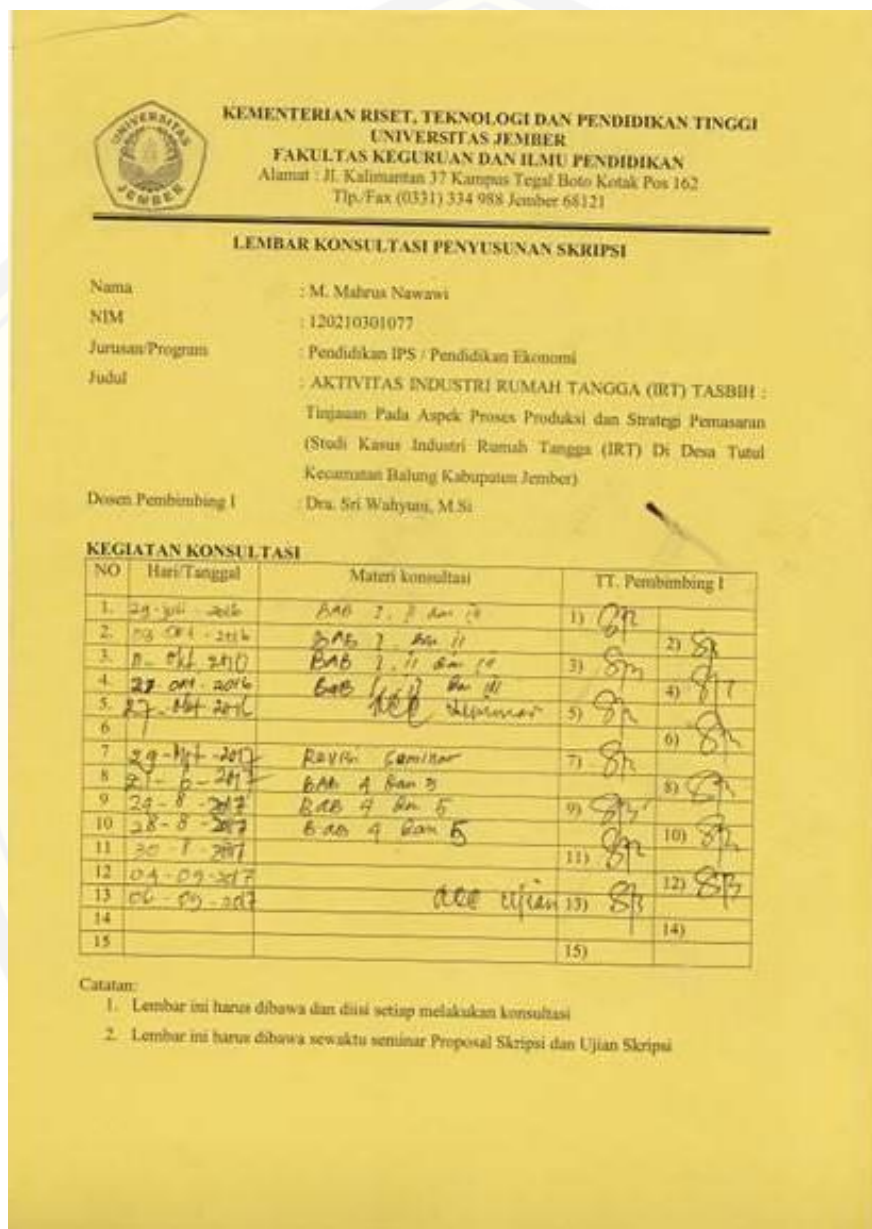 UNIVERSITAS
JEMBER
KEMENTERIAN RISET, TEKNOLOGI DAN PENDIDIKAN TINGGI
UNIVERSITAS JEMBER
FAKULTAS KEGURUAN DAN ILMU PENDIDIKAN
Alamat : Jl. Kalimantan 37 Kampus Tegal Boto Kotak Pos 162
Tlp./Fax (0331) 334 988 Jember 68121
LEMBAR KONSULTASI PENYUSUNAN SKRIPSI
Nama : M. Mahrus Nawawi
NIM : 120210301077
Jurusan/Program : Pendidikan IPS / Pendidikan Ekonomi
Judul : AKTIVITAS INDUSTRI RUMAH TANGGA (IRT) TASBIH :
Tinjauan Pada Aspek Proses Produksi dan Strategi Pemasaran
(Studi Kasus Industri Rumah Tangga (IRT) Di Desa Tutul
Kecamatan Balung Kabupaten Jember)
Dosen Pembimbing I : Dra. Sri Wahyuni, M.Si
KEGIATAN KONSULTASI
NO Hari/Tanggal Materi konsultasi TT. Pembimbing I
1. BAB 1)
2. BAB 2)
3. BAB 3)
4. 27 - 2016 BAB 4)
5. 27 ACC Seminar 5)
6 6)
7 29 - 2017 Revisi Seminar 7)
8 2017 BAB 4 dan 5 8)
9 29 - 8 - 2017 BAB 4 dan 5 9)
10 28 - 8 - 2017 BAB 4 dan 5 10)
11 30 - 8 - 2017 11)
12 04 - 09 - 2017 12)
13 06 - 09 - 2017 ACC Ujian 13)
14 14)
15 15)
Catatan:
1. Lembar ini harus dibawa dan diisi setiap melakukan konsultasi
2. Lembar ini harus dibawa sewaktu seminar Proposal Skripsi dan Ujian Skripsi